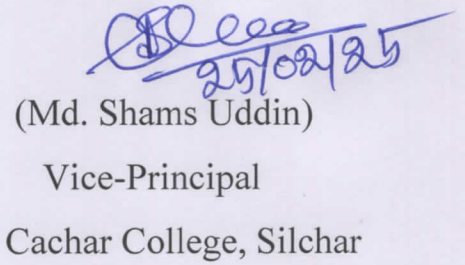 ২৫|০২|২৫
(Md. Shams Uddin)
Vice-Principal
Cachar College, Silchar